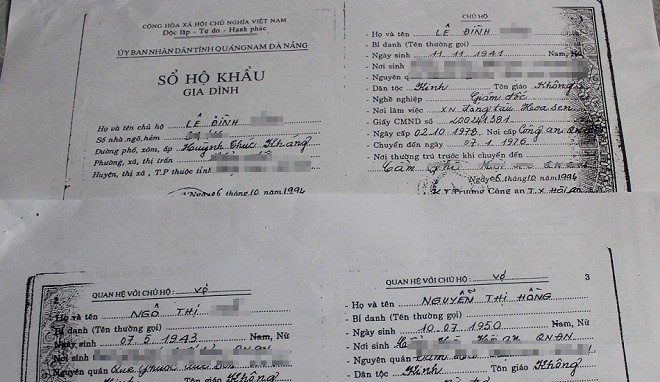 CỘNG HÒA XÃ HỘI CHỦ NGHĨA VIỆT NAM
Độc lập - Tự do - Hạnh phúc
ỦY BAN NHÂN DÂN TỈNH QUẢNG NAM ĐÀ NẴNG
SỔ HỘ KHẨU
GIA ĐÌNH
Họ và tên chủ hộ LÊ ĐÌNH
Số nhà ngõ, hẻm
Đường phố, xóm, ấp Huỳnh Thúc Kháng
Phường, xã, thị trấn
Huyện, thị xã, T.P thuộc tỉnh
Ngày 06 tháng 10 năm 1994
CHỦ HỘ
- Họ và tên LÊ ĐÌNH
- Bí danh (Tên thường gọi)
- Ngày sinh 11 11 1941 Nam, Nữ
- Nơi sinh
- Nguyên quán
- Dân tộc Kinh Tôn giáo Không
- Nghề nghiệp Giám đốc
- Nơi làm việc XN Hoa sen
- Giấy CMND số
- Ngày cấp 02.10.1978 Nơi cấp Công an QNĐN
- Chuyển đến ngày 07.1.1976
- Nơi thường trú trước khi chuyển đến
Cẩm phô
Ngày 06 tháng 10 năm 1994
K.T Trưởng Công an T.X Hội An
QUAN HỆ VỚI CHỦ HỘ: vợ
Họ và tên NGÔ THỊ
Bí danh (Tên thường gọi)
Ngày sinh 07 5 1943 Nam, Nữ
Nơi sinh
Nguyên quán
Kinh Không
QUAN HỆ VỚI CHỦ HỘ: vợ 3
- Họ và tên NGUYỄN THỊ HỒNG
- Bí danh (Tên thường gọi)
- Ngày sinh 10 07 1950 Nam, Nữ
- Nơi sinh QNĐN
- Nguyên quán
- Dân tộc Kinh Tôn giáo Không